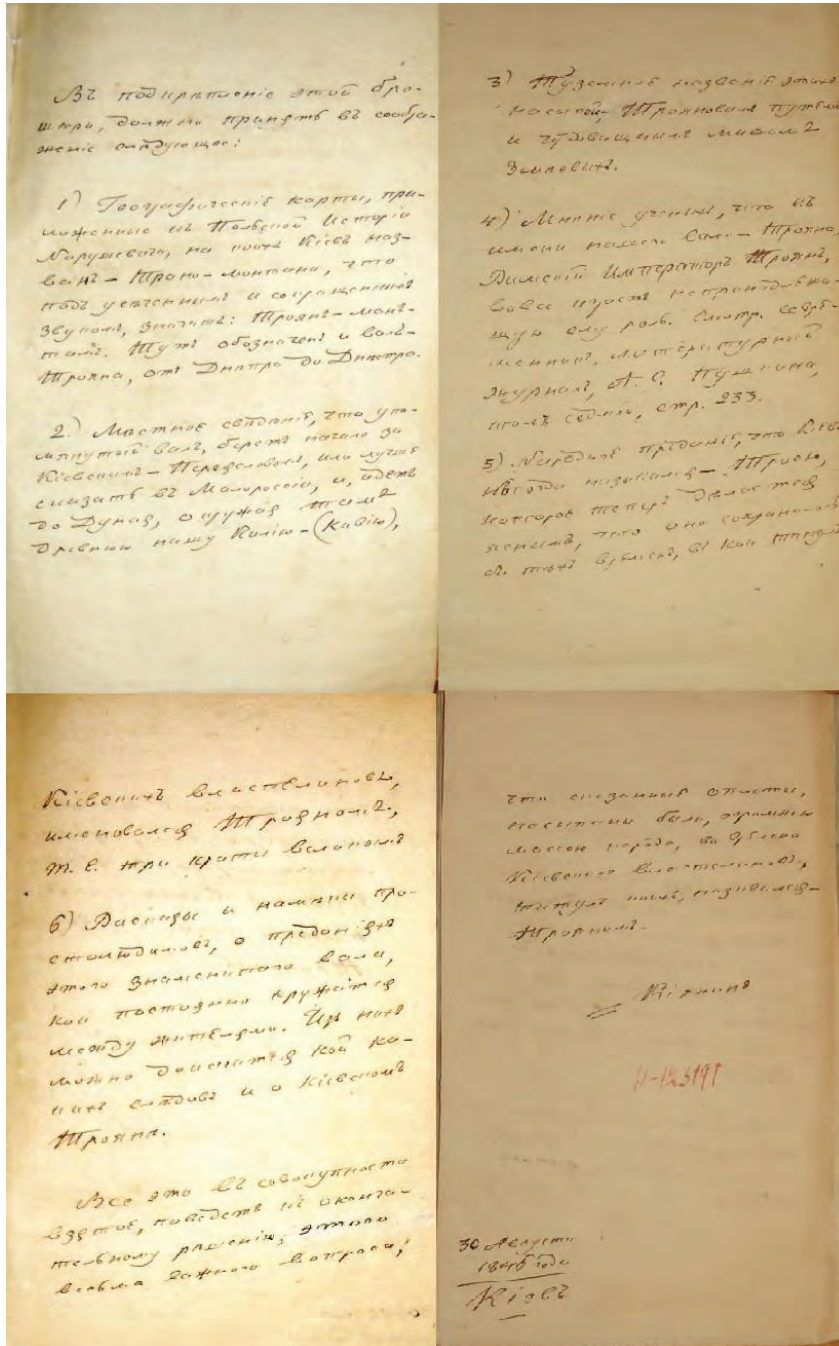 Въ подкрѣпленіе этой бро-
шюри, должно принять въ сообра-
женіе слѣдующее:
1) Географическіе карты, при-
ложенные къ Польской Исторіи
Нарушевича, на коихъ Кіевъ наз-
ванъ - Трано-монтана, что
подъ усѣченнымъ и сокращеннымъ
звукомъ, значитъ: Троянъ-мон-
танъ. Тутъ обозначенъ и валъ-
Трояна, отъ Днѣпра до Днѣстра.
2.) Мѣстное свѣдѣніе, что упо-
мянутый валъ, беретъ начало за
Кіевскимъ - Переяславомъ, или лучше
сказать въ Малороссіи, и, идетъ
до Дуная, окружая тамъ
древнюю нашу Килію - (Кавію),
3) Туземные названіе этихъ
насыпей, Трояновимъ путемъ
и чудовищнимъ миѳомъ
Земповихъ.
4) Мнѣніе ученыхъ, что въ
имени нашего Вала - Трояна,
Римскій Императоръ Троянъ,
вовсе играетъ непринадлежа-
щую ему роль. Смотр. совре-
менникъ, литературный
журналъ, А. С. Пушкина,
томъ седмой, стр. 233.
5) Народное преданіе, что Кіевъ
нѣкогда назывался - Троею,
которое теперь дѣлается
яснымъ, что оно сохранилось
съ тѣхъ временъ, въ кои титулъ
Кіевскихъ властелиновъ,
именовался Трояномъ,
т. е. три краты великимъ
6) Разсказы и намеки про-
столюдиновъ, о преданіяхъ
этого знаменитого вала,
кои постоянно кружатся
между жителями. Изъ нихъ
можно доискатся кой ка-
кихъ слѣдовъ и о Кіевскомъ
Троянѣ.
Все это въ совокупности
взятое, поведетъ къ оконча-
тельному рѣшенію, этого
весьма важного вопроса;
что сказанные оплоты,
насыпаны были, огромною
массою народа, во время
Кіевскихъ властелиновъ,
титулъ коихъ, назывался-
Трояномъ.
Кіянинъ
30 Августа
года
Кіевъ